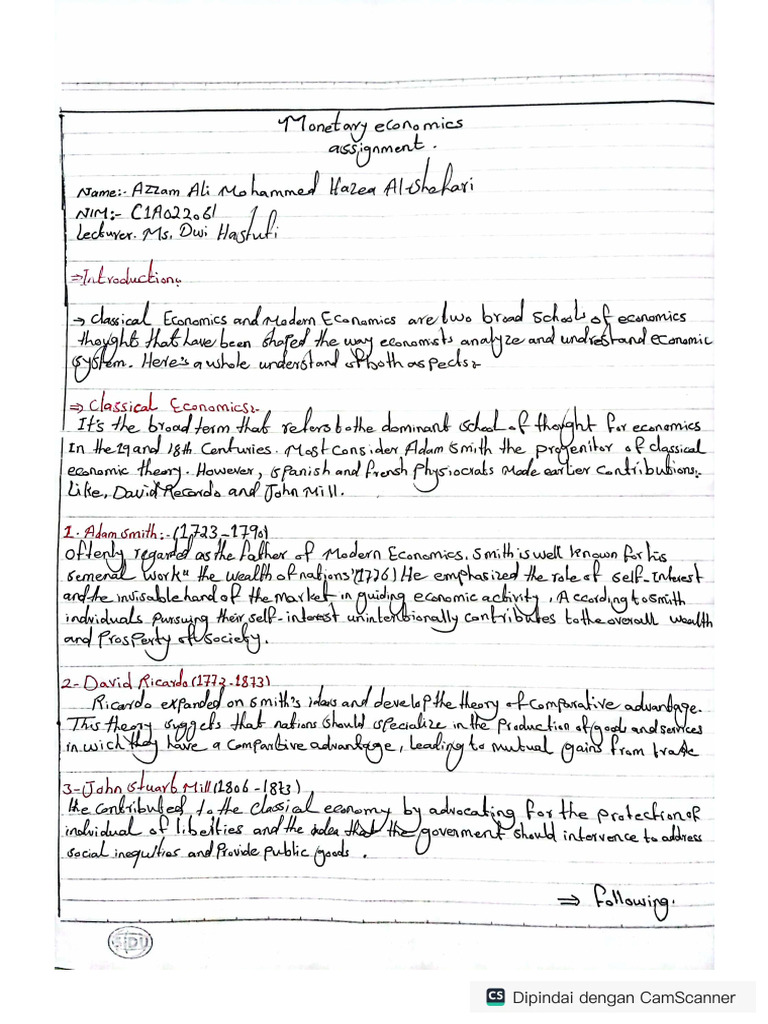 Monetary economics
assignment.
Name:- Azzam Ali Mohammed Hazea Al-shehari
NIM:- C1A022061
Lecturer. Ms. Dwi Hastuti
⇒Introduction:-
→ Classical Economics and Modern Economics are two broad schools of economics
thought that have been shaped the way economists analyze and undrestand economic
system. Here's a whole understand of both aspects:-
⇒ Classical Economics:-
It's the broad term that refers to the dominant school of thought for economics
In the 19 and 18th Centuries. Most consider Adam Smith the progenitor of classical
economic theory. However, spanish and frensh physiocrats made earlier contributions:-
Like, David Recardo and John Mill.
1. Adam Smith:- (1723-1790)
Oftenly regarded as the father of Modern Economics. Smith is well known for his
semenal work "the wealth of nations" (1776) He emphasized the role of self-interest
and the invisable hand of the market in guiding economic activity, According to smith
individuals pursuing their self-interest unintentionally contributes to the overall wealth
and Prosperty of Society.
2- David Ricardo (1772-1873)
Ricardo expanded on smith's ideas and develop the theory of comparative advantage.
This theory suggets that nations should specialize in the production of goods and services
in wich they have a comparttive advantage, leading to mutual gains from trade
3- John Stuart Mill (1806-1873)
He contributed to the classical economy by advocating for the protection of
individual of liberties and the that the goverment should intervence to address
social inequities and Provide public goods.
⇒ following.
SIDU
CS Dipindai dengan CamScanner